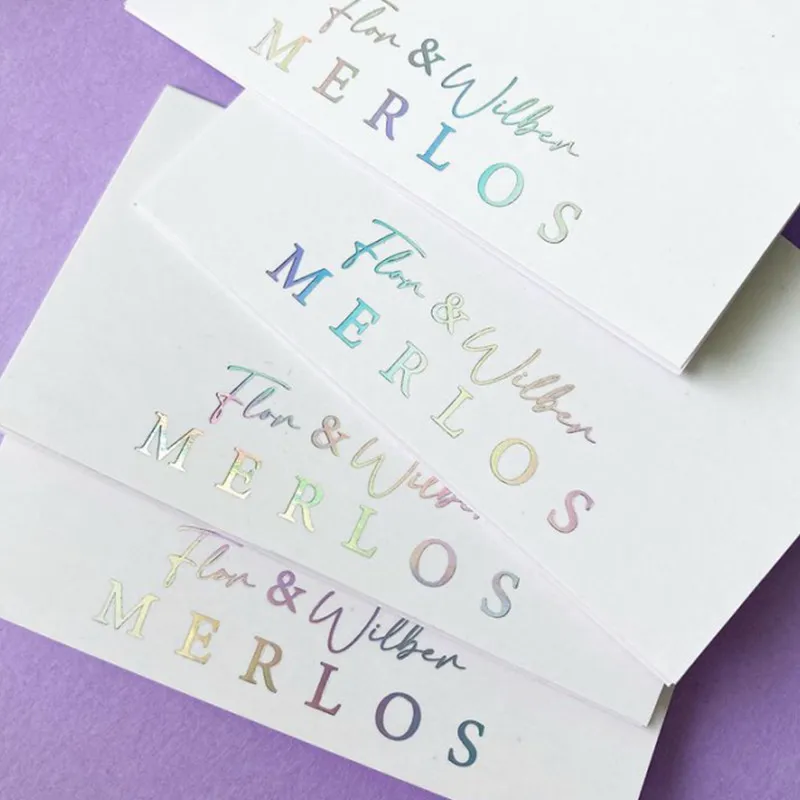 Flor & Wilber
MERLOS
Flor & Wilber
MERLOS
Flor & Wilber
MERLOS
Flor & Wilber
MERLOS